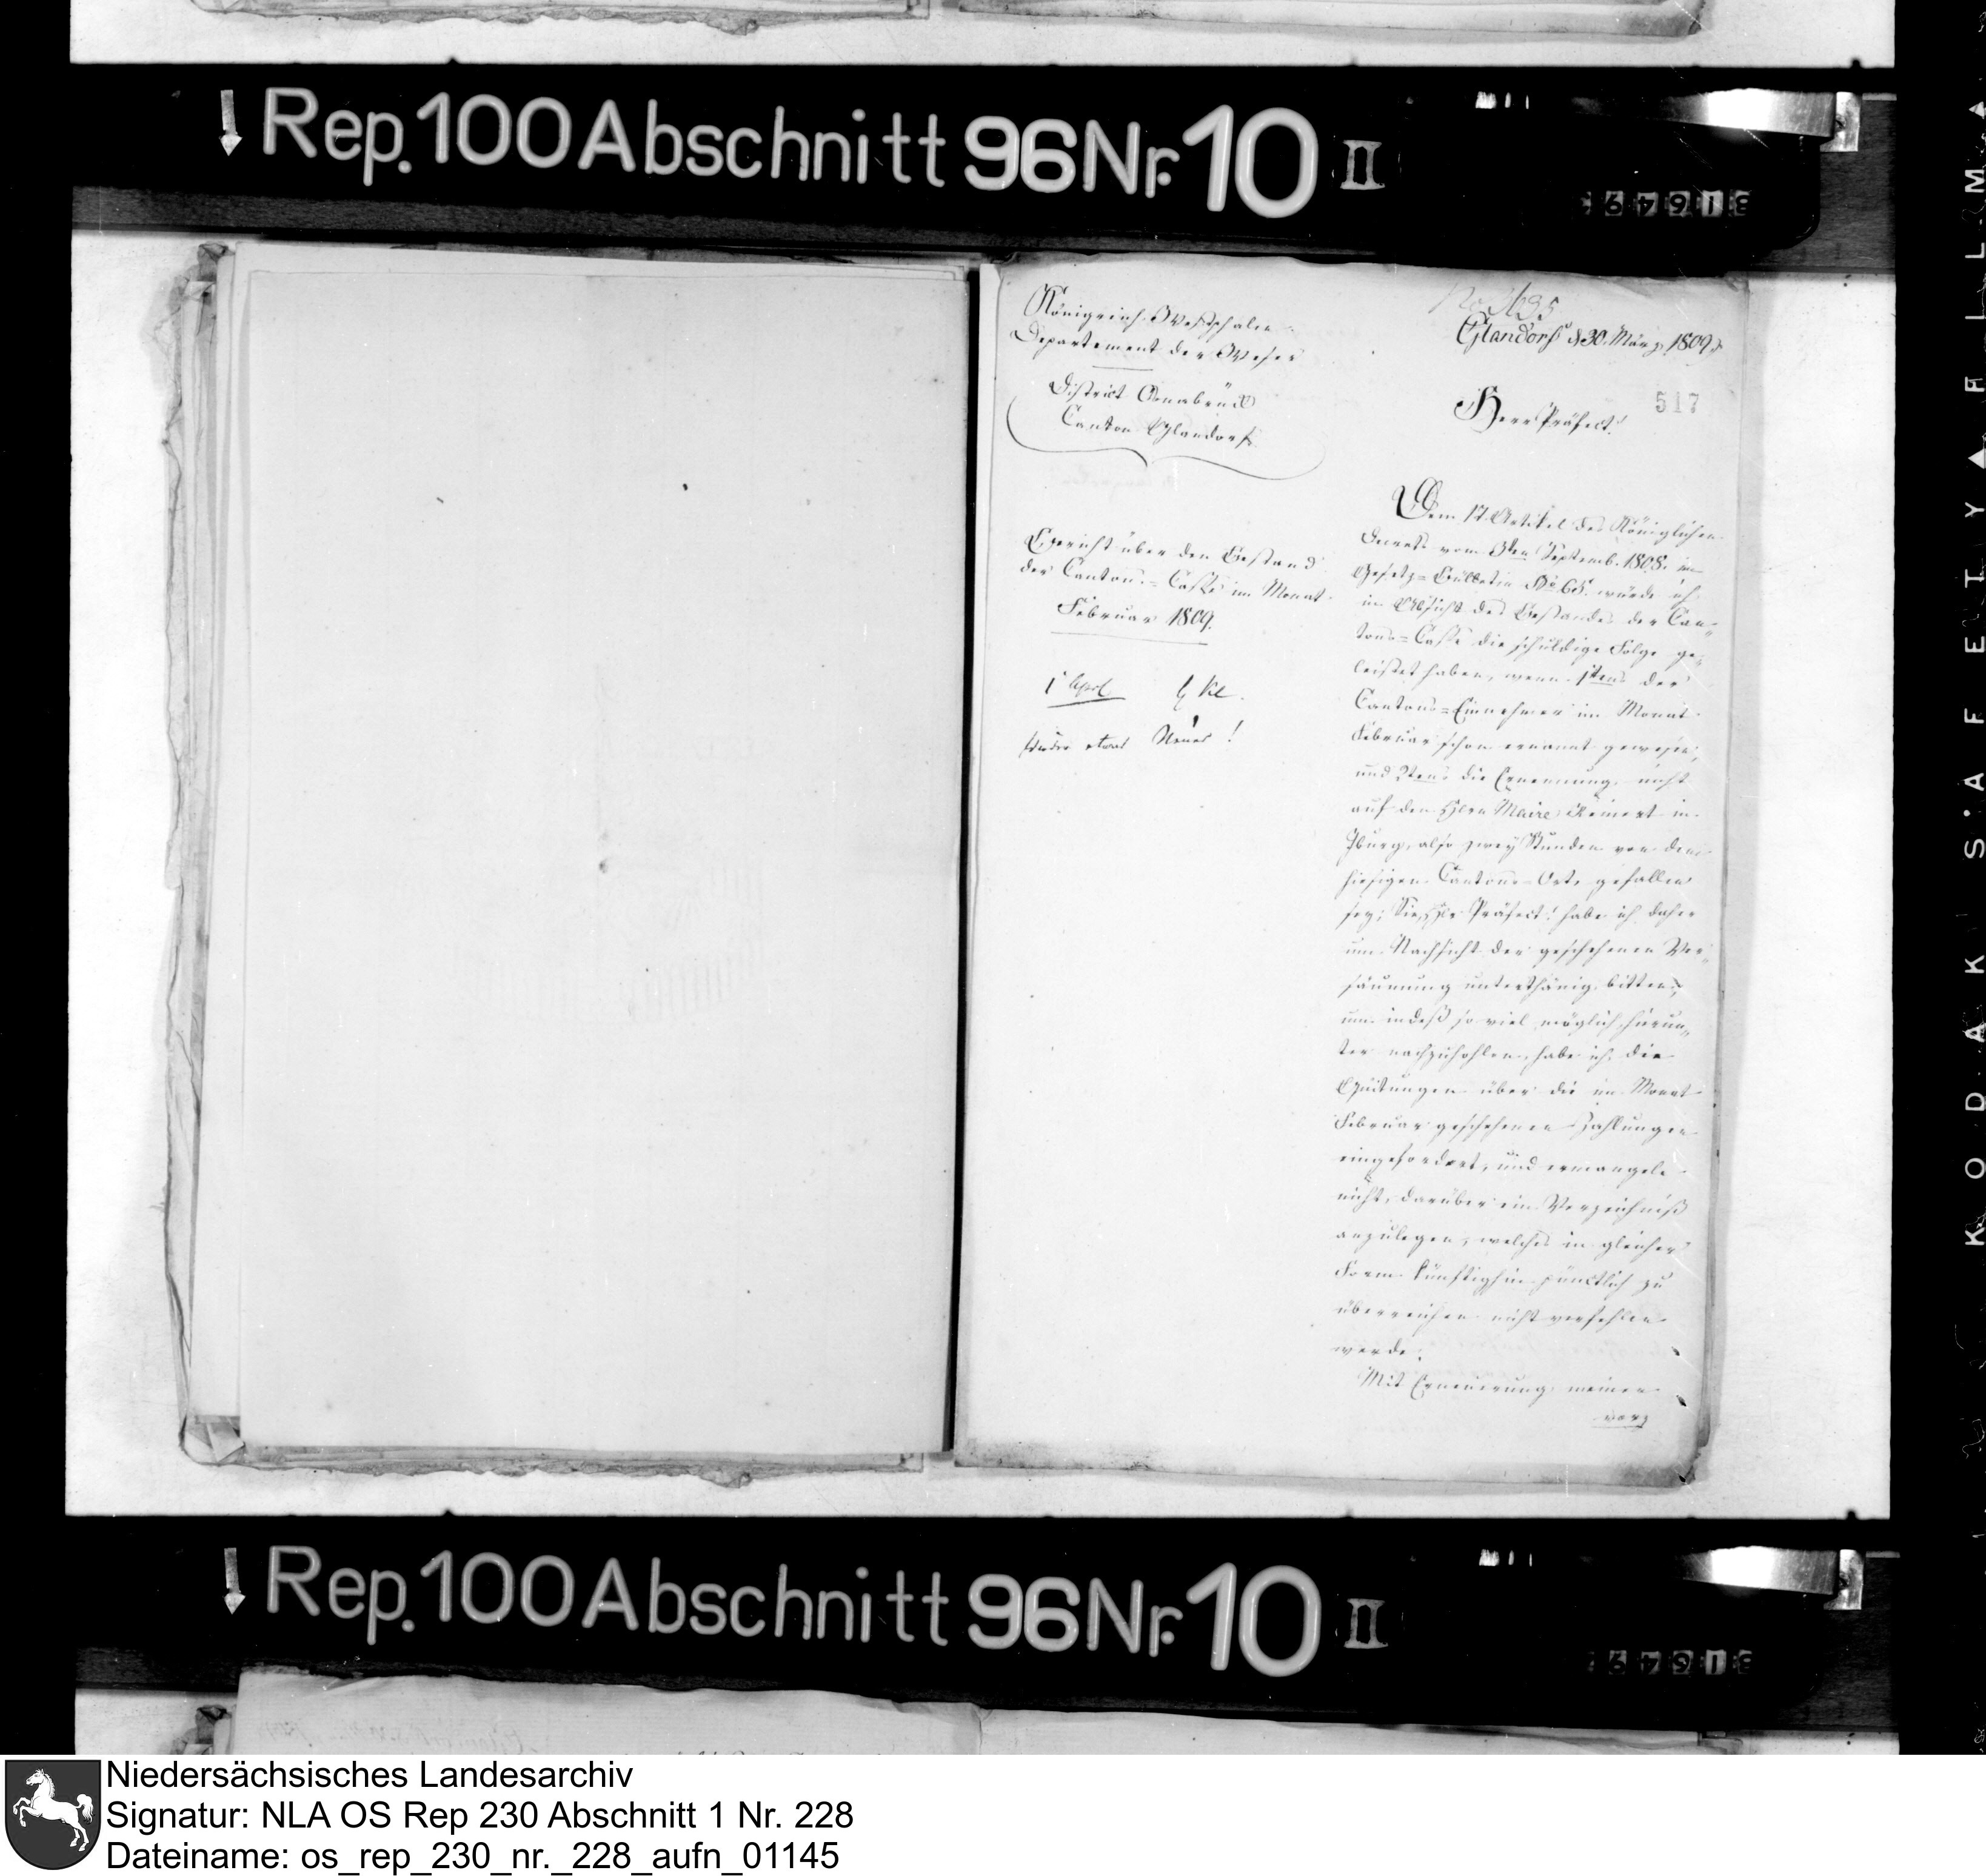 Rep. 100 Abschnitt 96 Nr. 10 II
Königreich Westphalen
Departement der Weser
District Osnabrück
Canton Glandorf
Bericht über den Bestand
der Cantons-Casse im Monat
Februar 1809.
1 April
etwas Neues!
No 3635
Glandorf d 30. März 1809.
517
Herr Präfect!
Dem 17 Artikel des Königlichen
Decrets vom 3ten Septemb. 1808. im
Gesetz-Bülletin No 65. würde ich
in Absicht des Bestandes der Can-
tons-Casse die schuldige Folge ge-
leistet haben, wenn 1tens der
Cantons-Einnehmer im Monat
Februar schon ernannt gewesen,
und 2tens die Ernennung nicht
auf den Hern Maire Reinert in
Iburg, also zwey Stunden von dem
hiesigen Cantons-Orte gefallen
sey; Sie, Hr Präfect! habe ich daher
um Nachsicht der geschehenen Ver-
säumung unterthänig bitten,
um indeß so viel möglich hierun-
ter nachzuhohlen, habe ich die
Quitungen über die im Monat
Februar geschehenen Zahlungen
eingefordert, und ermangele
nicht, darüber ein Verzeichniß
anzulegen, welches in gleicher
Form künftighin pünctlich zu
überreichen nicht verfehlen
werde.
Mit Erneuerung meiner
Rep. 100 Abschnitt 96 Nr. 10 II
KODAK SAFETY FILM
Niedersächsisches Landesarchiv
Signatur: NLA OS Rep 230 Abschnitt 1 Nr. 228
Dateiname: os_rep_230_nr._228_aufn_01145